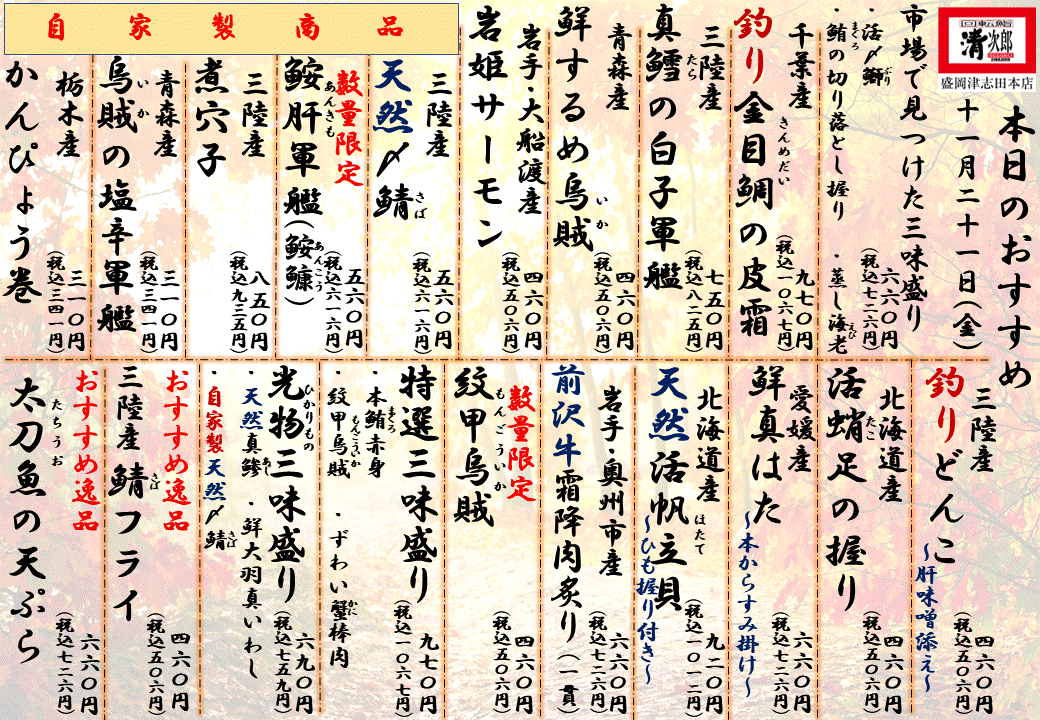 回転鮨
清次郎
盛岡津志田本店
本日のおすすめ
十一月二十一日(金)
市場で見つけた三味盛り
・活〆鰤
・鮪の切り落とし握り
・蒸し海老
六六〇円
(税込七二六円)
千葉産
釣り金目鯛の皮霜
きんめだい
九七〇円
(税込一〇六七円)
三陸産
真鱈の白子軍艦
たら
七五〇円
(税込八二五円)
青森産
鮮するめ烏賊
いか
四六〇円
(税込五〇六円)
岩手・大船渡産
岩姫サーモン
四六〇円
(税込五〇六円)
自家製商品
三陸産
天然〆鯖
さば
五六〇円
(税込六一六円)
数量限定
鮟肝軍艦(鮟鱇)
あんきも
あんこう
五六〇円
(税込六一六円)
三陸産
煮穴子
八五〇円
(税込九三五円)
青森産
烏賊の塩辛軍艦
いか
三一〇円
(税込三四一円)
栃木産
かんぴょう巻
三一〇円
(税込三四一円)
三陸産
釣りどんこ
~肝味噌添え~
四六〇円
(税込五〇六円)
北海道産
活蛸足の握り
たこ
四六〇円
(税込五〇六円)
愛媛産
鮮真はた
~本からすみ掛け~
六六〇円
(税込七二六円)
北海道産
天然活帆立貝
ほたて
~ひも握り付き~
九二〇円
(税込一〇一二円)
岩手・奥州市産
前沢牛霜降肉炙り(一貫)
六六〇円
(税込七二六円)
数量限定
紋甲烏賊
もんごういか
四六〇円
(税込五〇六円)
特選三味盛り
・本鮪赤身
まぐろ
・ずわい蟹棒肉
かに
・紋甲烏賊
もんごういか
九七〇円
(税込一〇六七円)
光物三味盛り
ひかりもの
・天然真鯵
あじ
・鮮大羽真いわし
・自家製天然〆鯖
さば
六九〇円
(税込七五九円)
おすすめ逸品
三陸産 鯖フライ
さば
四六〇円
(税込五〇六円)
おすすめ逸品
太刀魚の天ぷら
たちうお
六六〇円
(税込七二六円)